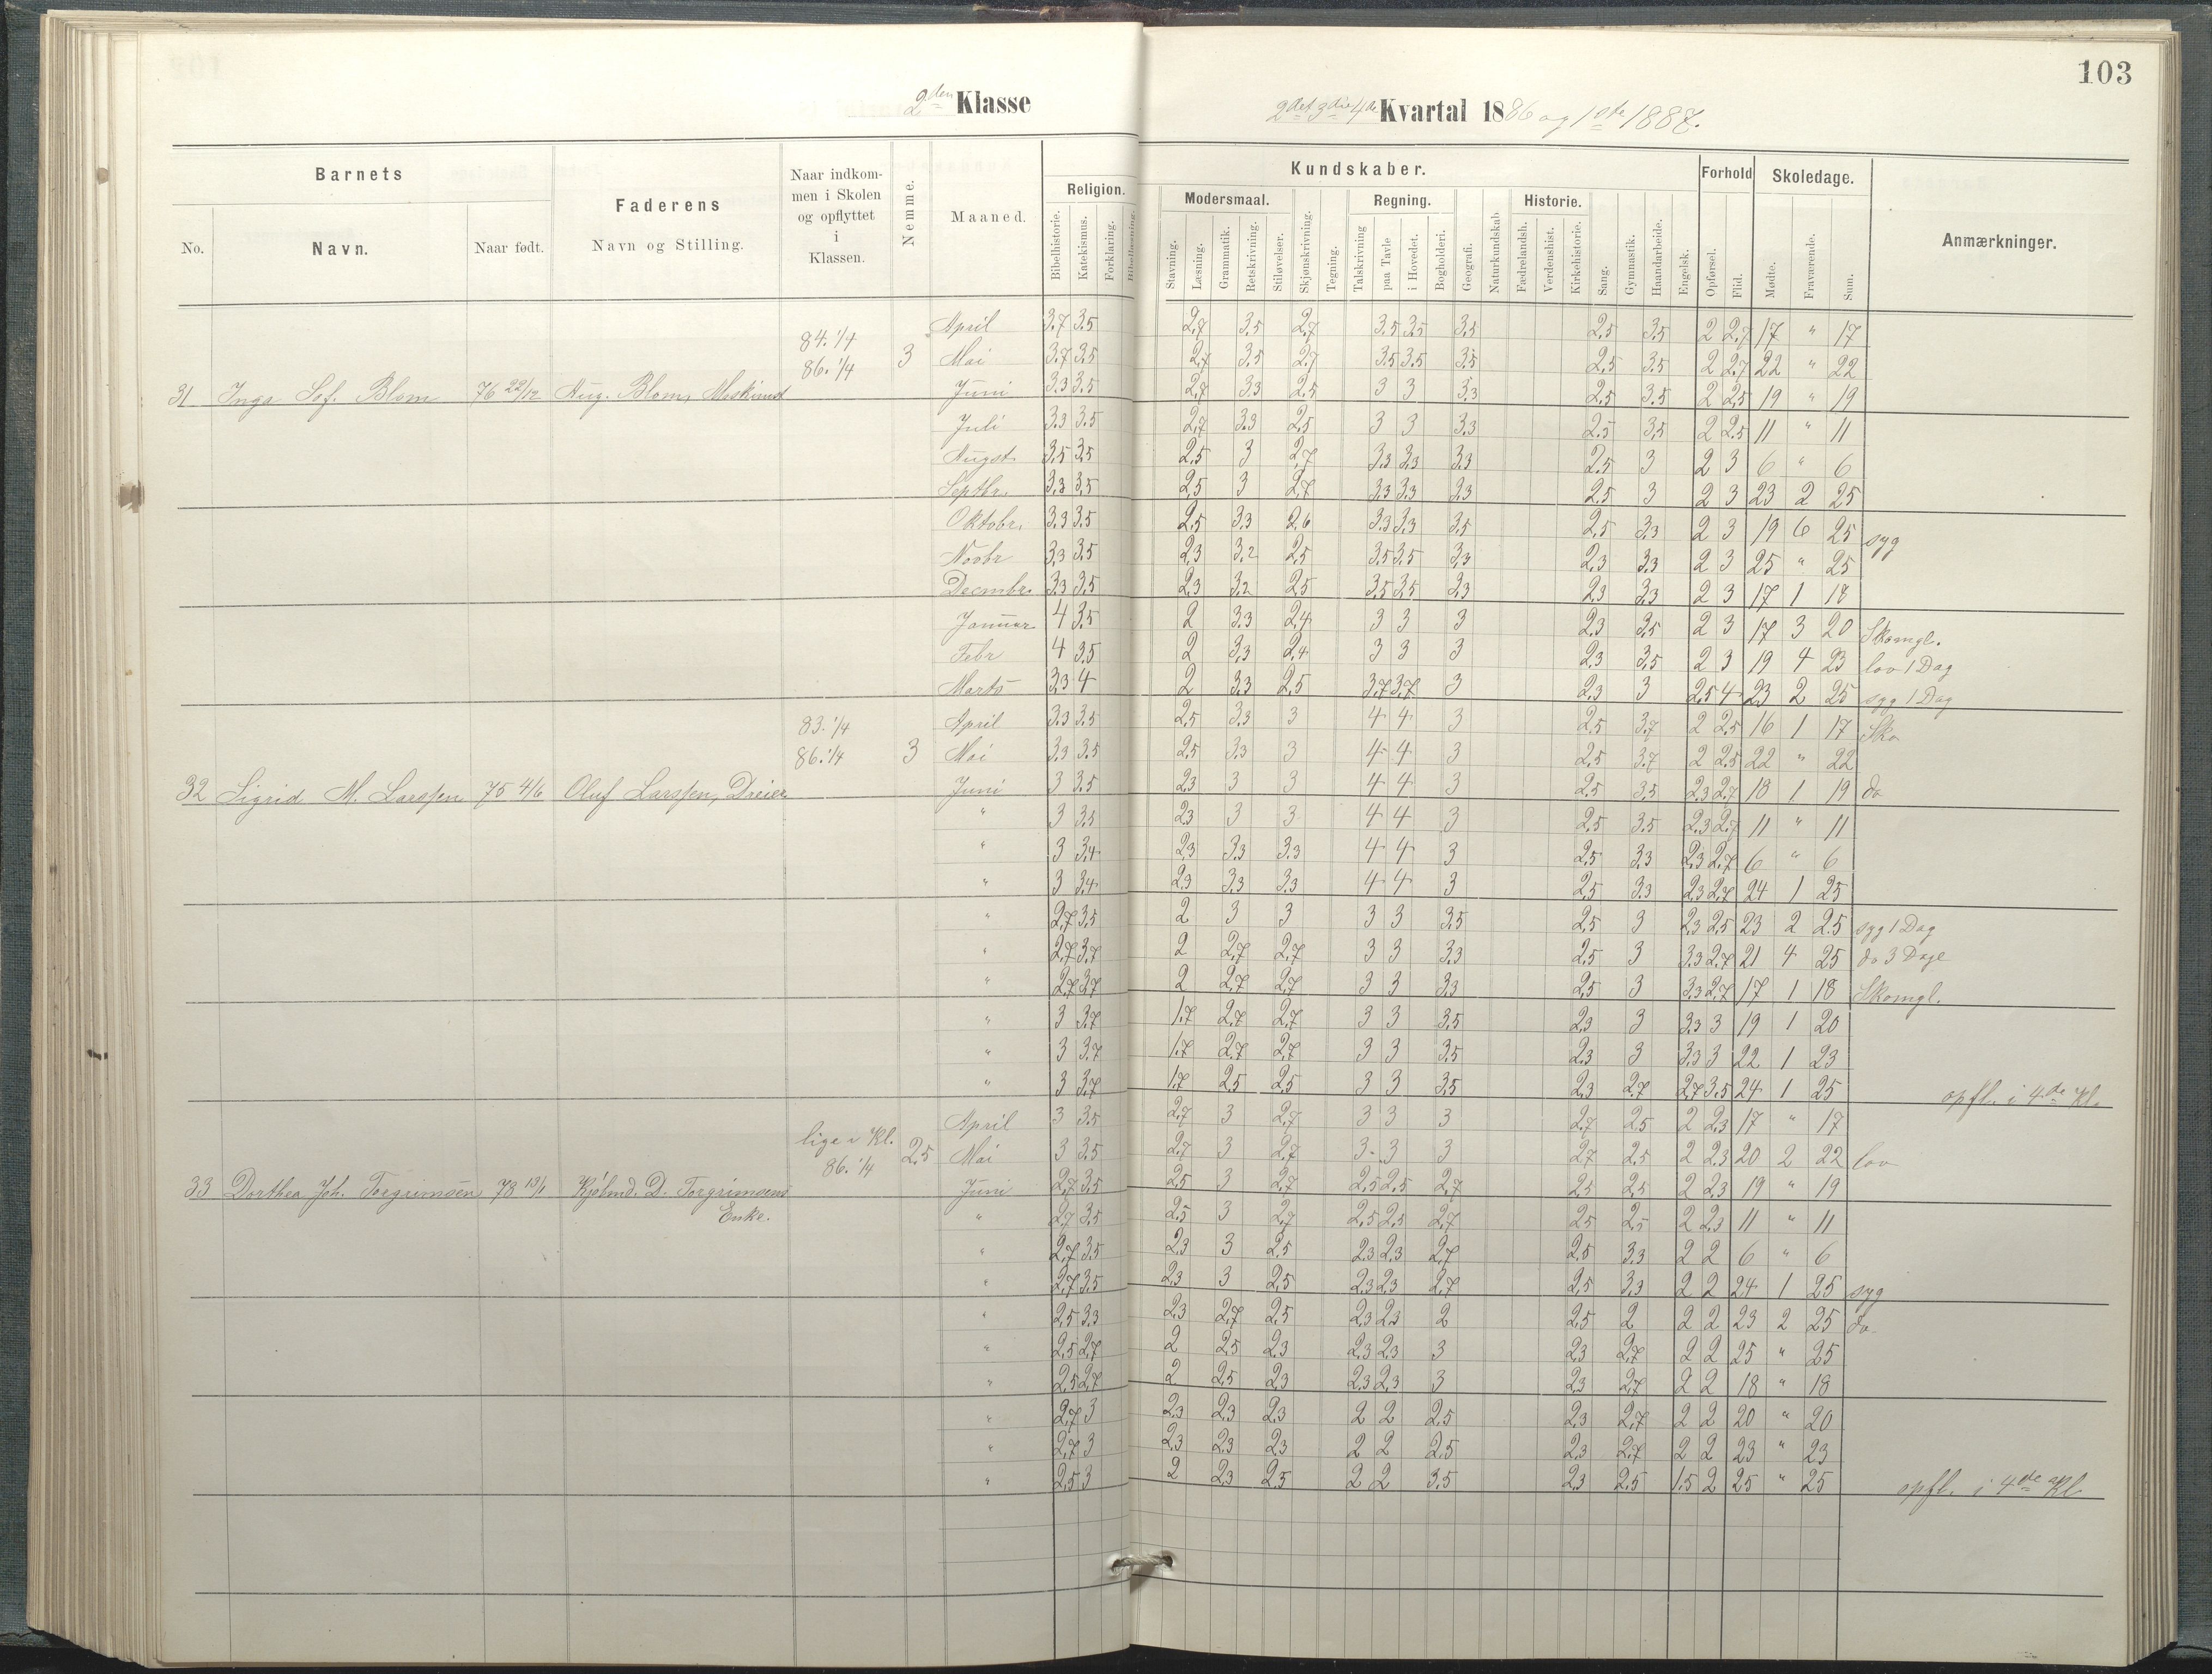 103
2den Klasse
2det 3die 4de Kvartal 1886 og 1ste 1887.
Barnets
No.
Navn.
Naar født.
Faderens
Navn og Stilling.
Naar indkom-
men i Skolen
og opflyttet
i
Klassen.
Nemme.
Maaned.
Kundskaber.
Religion.
Bibelhistorie.
Katekismus.
Forklaring.
Bibellæsning.
Modersmaal.
Stavning.
Læsning.
Grammatik.
Retskrivning.
Stiløvelser.
Skjønskrivning.
Tegning.
Regning.
Talskrivning
paa Tavle
i Hovedet.
Bogholderi.
Geografi.
Naturkundskab.
Historie.
Fædrelandsh.
Verdenshist.
Kirkehistorie.
Sang.
Gymnastik.
Haandarbeide.
Engelsk.
Forhold
Opførsel.
Flid.
Skoledage.
Mødte.
Fraværende.
Sum.
Anmærkninger.
84. 1/4
86. 1/4
3
31 Inga Sof. Blom 76 22/12 Aug. Blom, Maskinist
April 3.7 3.5 2,7 3.5 2,7 3.5 3.5 3.5 2,5 3.5 2 2.7 17 " 17
Mai 3.7 3.5 2,7 3.5 2,7 3.5 3.5 3.5 2.5 3.5 2 2.7 22 " 22
Juni 3.3 3.5 2,7 3.3 2,5 3 3 3.3 2.5 3.5 2 2,5 19 " 19
Juli 3.3 3.5 2,7 3.3 2,5 3 3 3.3 2.5 3,5 2 2.5 11 " 11
Augst. 3.5 3.5 2,5 3 2,7 3.3 3.3 3.3 2.5 3 2 3 6 " 6
Septbr. 3.3 3.5 2,5 3 2,7 3.3 3.3 3.3 2,5 3 2 3 23 2 25
Oktobr. 3.3 3.5 2,5 3.3 2.6 3.3 3.3 3.5 2,5 3.3 2 3 19 6 25 syg
Novbr 3.3 3.5 2,3 3.2 2,5 3.5 3.5 3.3 2,3 3.3 2 3 25 " 25
Decmbr. 3.3 3.5 2,3 3.2 2,5 3.5 3.5 3.3 2,3 3.3 2 3 17 1 18
Januar 4 3.5 2 3.3 2,4 3 3 3 2,3 3.5 2 3 17 3 20 Skomgl.
Febr 4 3.5 2 3.3 2,4 3 3 3 2,3 3,5 2 3 19 4 23 lov 1 Dag
Marts 3.3 4 2 3.3 2,5 3.7 3.7 3 2,3 3 2,5 4 23 2 25 syg 1 Dag
83. 1/4
86. 1/4
3
32 Sigrid M. Larssen 75 4/6 Oluf Larssen, Dreier
April 3.3 3.5 2,5 3.3 3 4 4 3 2,5 3,7 2 2,5 16 1 17 Sko
Mai 3.3 3.5 2,5 3.3 3 4 4 3 2,5 3.7 2 2,5 22 " 22
Juni 3 3.5 2,3 3 3 4 4 3 2,5 3,5 2,3 2,7 18 1 19 do
" 3 3.5 2,3 3 3 4 4 3 2,5 3.5 2,3 2,7 11 " 11
" 3 3.4 2,3 3.3 3.3 4 4 3 2,5 3.3 2,3 2,7 6 " 6
" 3 3.4 2,3 3.3 3.3 4 4 3 2,5 3.3 2,3 2,7 24 1 25
" 2,7 3.5 2 3 3 3 3 3.5 2,5 3 2,3 2,5 23 2 25 syg 1 Dag
" 2,7 3.7 2 2,7 2,7 3 3 3.3 2,5 3 3.3 2,7 21 4 25 do 3 Dage
" 2,7 3.7 2 2,7 2,7 3 3 3.3 2,5 3 3.3 2,7 17 1 18 Skomgl.
" 3 3.7 1.7 2,7 2,7 3 3 3.5 2,3 3 3.3 3 19 1 20
" 3 3.7 1.7 2,7 2,7 3 3 3.5 2,3 3 3.3 3 22 1 23
" 3 3.7 1.7 2,5 2,5 3 3 3.5 2,3 2,7 2,7 3.5 24 1 25 opfl. i 4de Kl.
lige i Kl.
86. 1/4
2,5
33 Dorthea Joh. Torgrimsen 73 13/1 Kjøbmd. D. Torgrimsens
Enke.
April 3 3.5 2,7 3 2,7 3 3 3 2,7 2,5 2 2,3 17 " 17
Mai 3 3.5 2,7 3 2,7 3 3 3 2,7 2,5 2 2,3 20 2 22 lov
Juni 2,7 3.5 2,5 3 2,7 2,5 2,5 2,7 2,5 2,5 2 2,3 19 " 19
" 2,7 3.5 2,5 3 2,7 2,5 2,5 2,7 2,5 2,5 2 2,3 11 " 11
" 2,7 3.5 2,3 3 2,5 2,3 2,3 2,7 2,5 3.3 2 2 6 " 6
" 2,7 3.5 2,3 3 2,5 2,3 2,3 2,7 2,5 3.3 2 2 24 1 25 syg
" 2,5 3.3 2,3 2,7 2,5 2,3 2,3 2 2,5 2 2 2 23 2 25 do
" 2,5 2,7 2 2,5 2,3 2,3 2,3 3 2,3 2,7 2 2 25 " 25
" 2,5 2,7 2 2,5 2,3 2,3 2,3 3 2,3 2,7 2 2 18 " 18
" 2,7 3 2,3 2,3 2,3 2 2 2,5 2,3 2,7 2 2 20 " 20
" 2,7 3 2,3 2,3 2,3 2 2 2,5 2,3 2,7 2 2 23 " 23
" 2,5 3 2 2,3 2,5 2 2 3.5 2,3 2,5 1.5 2 25 " 25 opfl. i 4de Kl